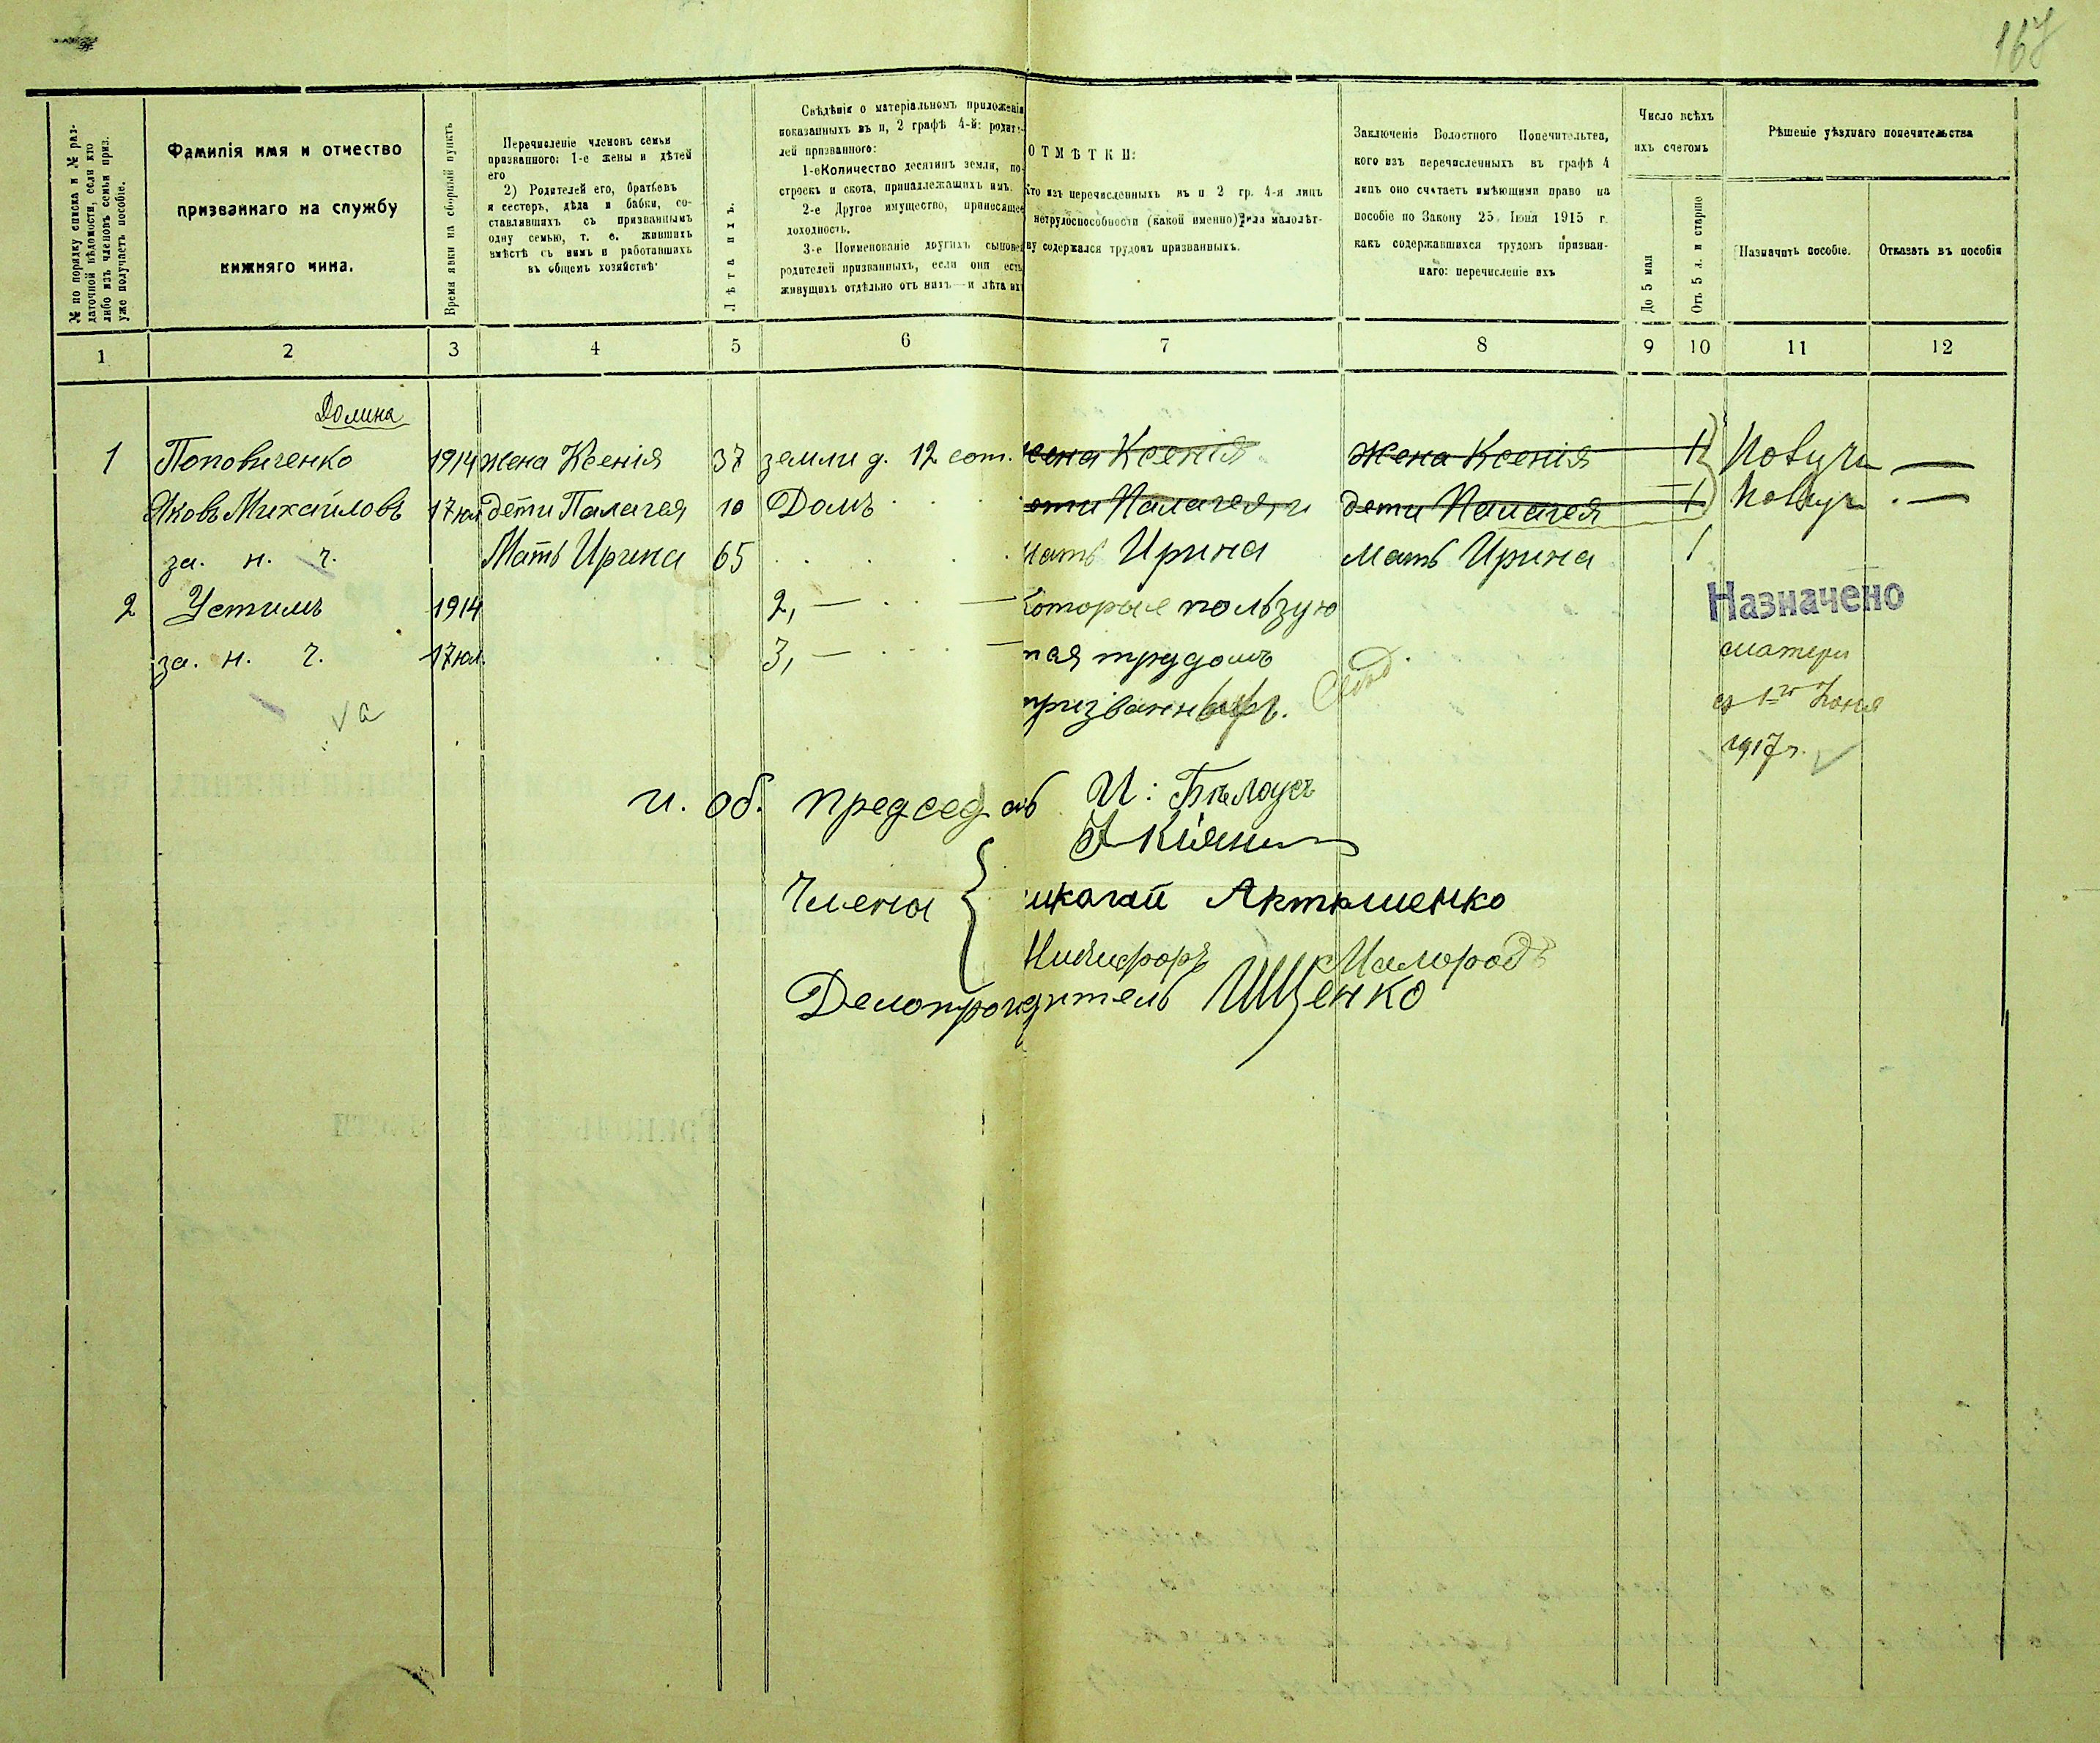 167
№ по порядку списка и № раз-
даточной вѣдомости, если кто
либо изъ членовъ семьи приз.
уже получаетъ пособіе.
Фамилія имя и отчество
призваннаго на службу
нижняго чина.
Время явки на сборный пунктъ
Перечисленіе членовъ семьи
призваннаго: 1-е жены и дѣтей
его
2) Родителей его, братьевъ
и сестеръ, дѣда и бабки, со-
ставлявшихъ съ призваннымъ
одну семью, т. е. жившихъ
вмѣстѣ съ нимъ и работавшихъ
въ общемъ хозяйствѣ
Лѣта ихъ.
Свѣдѣнія о матеріальномъ приложеніи
показанныхъ въ п, 2 графѣ 4-й: родите-
лей призваннаго:
1-е Количество десятинъ земли, по-
строекъ и скота, принадлежащихъ имъ.
2-е Другое имущество, приносящее
доходность.
3-е Поименованіе другихъ сыновей
родителей призванныхъ, если они есть
живущихъ отдѣльно отъ нихъ—и лѣта ихъ
ОТМѢТКИ:
Кто изъ перечисленныхъ въ п 2 гр. 4-я лицъ
нетрудоспособности (какой именно) или малолѣт-
ву содержался трудомъ призванныхъ.
Заключеніе Волостного Попечительтва,
кого изъ перечисленныхъ въ графѣ 4
лицъ оно считаетъ имѣющими право на
пособіе по Закону 25 Іюня 1915 г.
какъ содержавшихся трудомъ призван-
наго: перечисленіе ихъ
Число всѣхъ
ихъ счетомъ
До 5 мая
Отъ 5 л. и старше
Рѣшеніе уѣзднаго попечительства
Назначить пособіе.
Отказать въ пособіи
1 2 3 4 5 6 7 8 9 10 11 12
Долина
1 Поповиченко 1914 жена Ксенія 37 земли д. 12 сот. жена Ксенія жена Ксенія 1
Яковъ Михайловъ 17 юл дети Палагея 10 Домъ дети Палагея и дети Палагея 1
за. н. ч. Мать Ирина 65 мать Ирина мать Ирина 1
2 Устимъ 1914 2, — — которые пользую
Назначено
за. н. ч. 17 юл. 3, — — тся трудомъ
матери
призванныхъ.
съ 1го Іюня
1917 г.
и. об. председ ать И: Бѣлоусъ
Члены
Артюшенко
Никифоръ
Делопроизводитель Ищенко